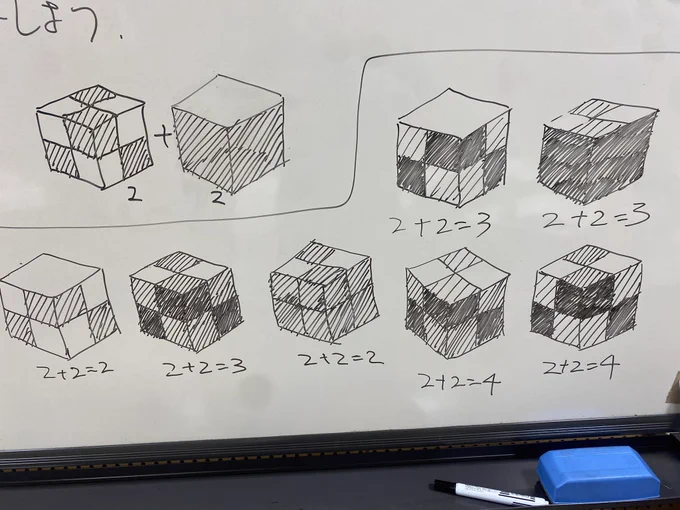 しょう.
2
+
2
2+2=3
2+2=3
2+2=2
2+2=3
2+2=2
2+2=4
2+2=4